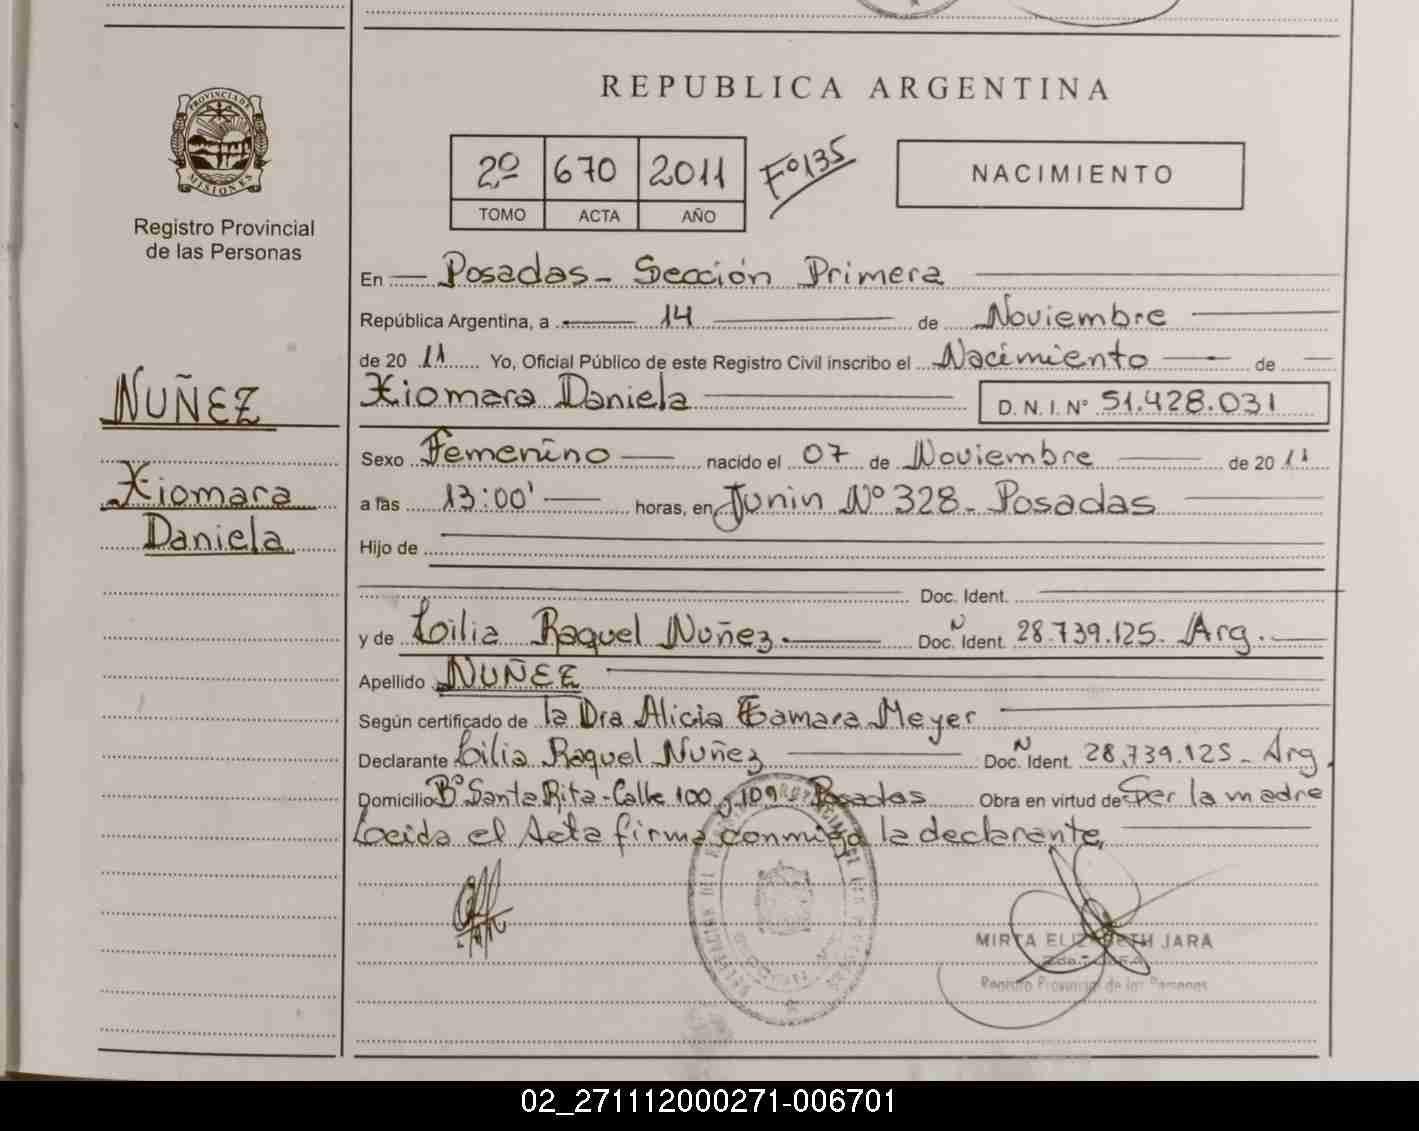 REPUBLICA ARGENTINA
PROVINCIA DE
MISIONES
Registro Provincial
de las Personas
2º 670 2011 Fº135
TOMO ACTA AÑO
NACIMIENTO
En Posadas - Sección Primera
República Argentina, a 14 de Noviembre
de 20 11 Yo, Oficial Público de este Registro Civil inscribo el Nacimiento de
Xiomara Daniela D. N. I. Nº 51.428.031
NUÑEZ
Xiomara
Daniela
Sexo Femenino nacido el 07 de Noviembre de 20 11
a las 13:00' horas, en Junin Nº 328 - Posadas
Hijo de
Doc. Ident.
y de Lilia Raquel Nuñez. Doc. N Ident. 28.739.125. Arg.
Apellido NUÑEZ
Según certificado de la Dra Alicia Tamara Meyer
Declarante Lilia Raquel Nuñez Doc. N Ident. 28.739.125 - Arg.
Domicilio Bº Santa Rita - Calle 100 y 109 - Posadas Obra en virtud de Ser la madre
Leida el Acta firma conmigo la declarante,
MIRTA ELIZABETH JARA
Registro Provincial de las Personas
02_271112000271-006701